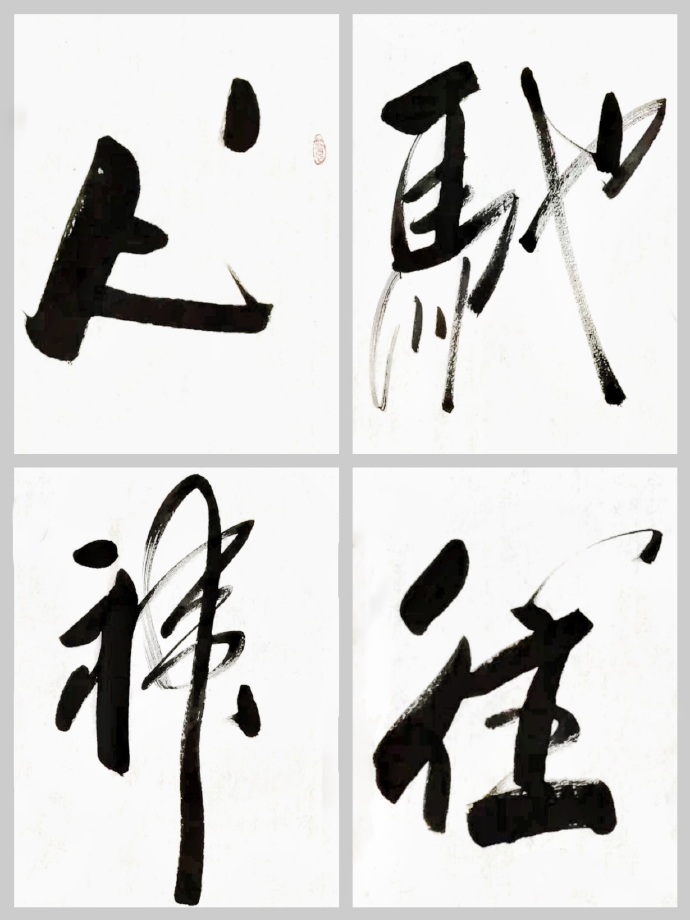 心馳
神往